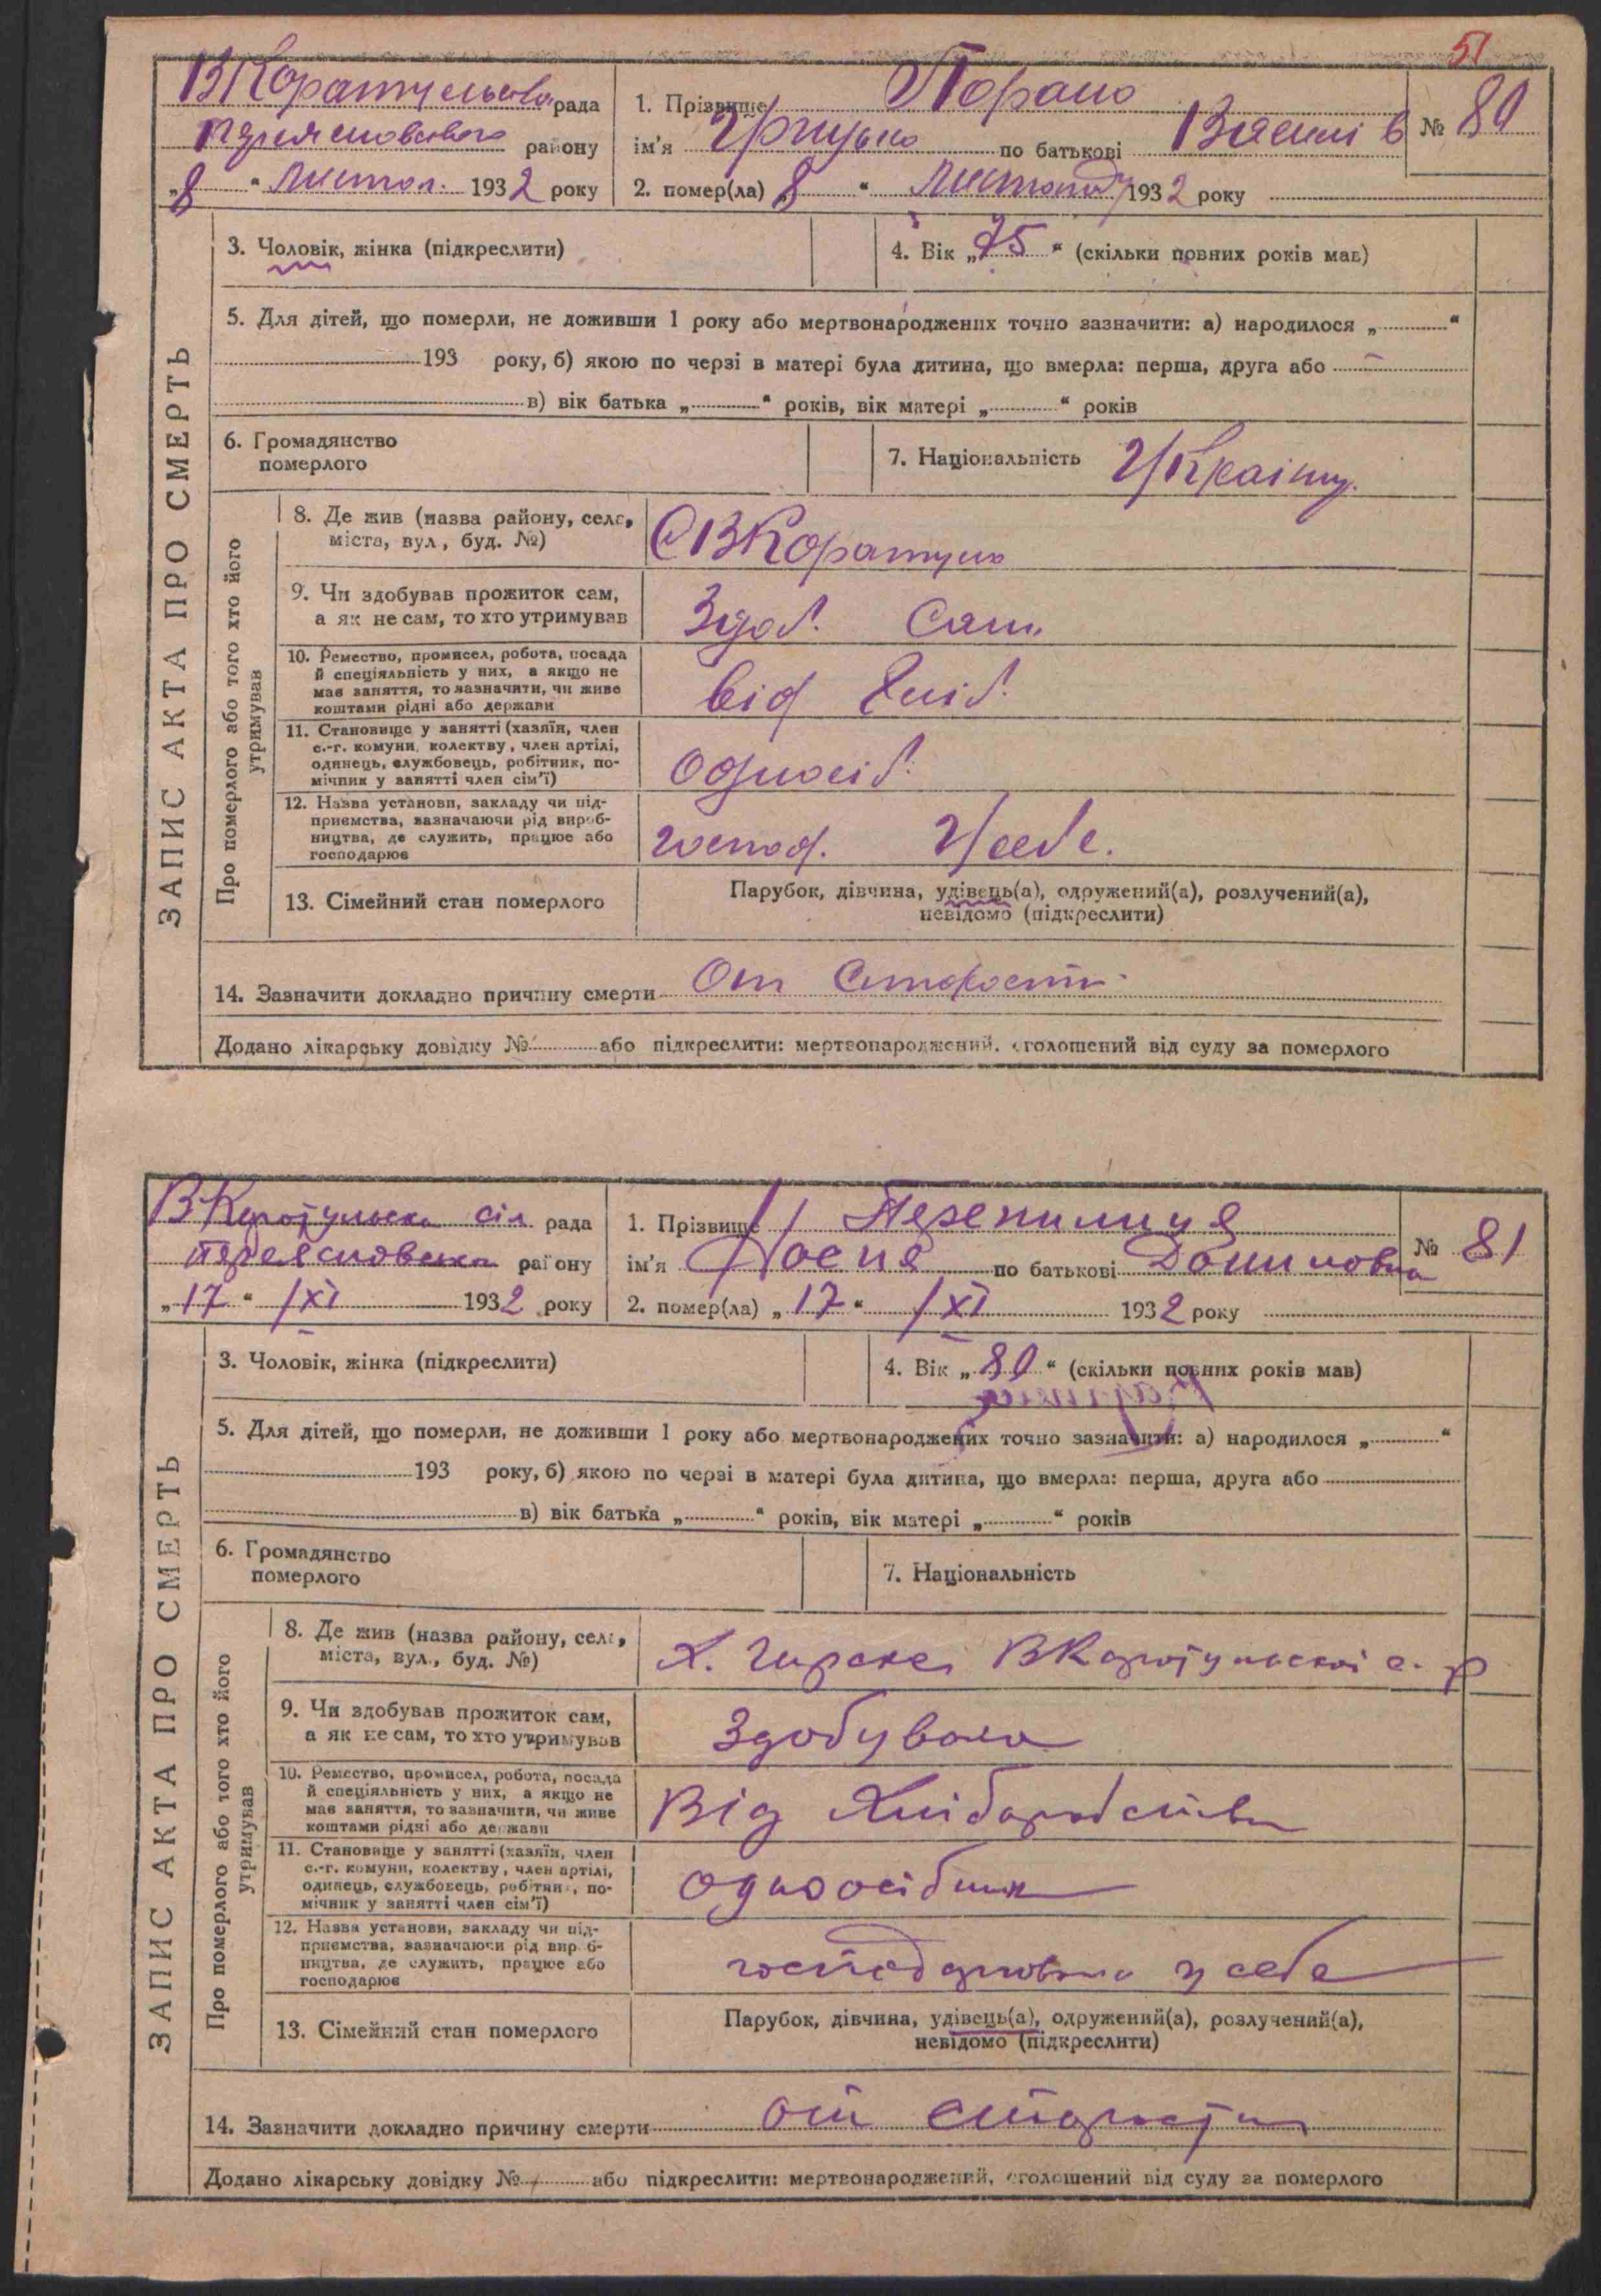 51
ЗАПИС АКТА ПРО СМЕРТЬ
рада
району
„8“ Листоп. 1932 року
1. Прізвище
ім'я по батькові
№ 80
2. помер(ла) 8“ Листопад 1932 року
3. Чоловік, жінка (підкреслити)
4. Вік „75“ (скільки повних років мав)
5. Для дітей, що померли, не доживши 1 року або мертвонароджених точно зазначити: а) народилося „ “
193 року, б) якою по черзі в матері була дитина, що вмерла: перша, друга або
в) вік батька „ “ років, вік матері „ “ років
6. Громадянство
померлого
7. Національність
Про померлого або того хто його
утримував
8. Де жив (назва району, села,
міста, вул., буд. №)
9. Чи здобував прожиток сам,
а як не сам, то хто утримував
Здоб. Сам.
10. Ремество, промисел, робота, посада
й спеціяльність у них, а якщо не
має заняття, то зазначити, чи живе
коштами рідні або держави
від хліб.
11. Становище у занятті (хазяїн, член
с.-г. комуни, колектву, член артілі,
одинець, службовець, робітник, по-
мічник у занятті член сім'ї)
Одноосіб.
12. Назва установи, закладу чи під-
приємства, зазначаючи рід вироб-
ництва, де служить, працює або
господарює
господ. У себе.
13. Сімейний стан померлого
Парубок, дівчина, удівець(а), одружений(а), розлучений(а),
невідомо (підкреслити)
14. Зазначити докладно причину смерти От Старости
Додано лікарську довідку № або підкреслити: мертвонароджений, оголошений від суду за померлого
ЗАПИС АКТА ПРО СМЕРТЬ
сіл рада
району
„17“ /XI 1932 року
1. Прізвище Перепилиця
ім'я по батькові Даниловна
№ 81
2. помер(ла) „17“ /XI 1932 року
3. Чоловік, жінка (підкреслити)
4. Вік „80“ (скільки повних років мав)
5. Для дітей, що померли, не доживши 1 року або мертвонароджених точно зазначити: а) народилося „ “
193 року, б) якою по черзі в матері була дитина, що вмерла: перша, друга або
в) вік батька „ “ років, вік матері „ “ років
6. Громадянство
померлого
7. Національність
Про померлого або того хто його
утримував
8. Де жив (назва району, села,
міста, вул., буд. №)
х. с. р
9. Чи здобував прожиток сам,
а як не сам, то хто утримував
Здобувала
10. Ремество, промисел, робота, посада
й спеціяльність у них, а якщо не
має заняття, то зазначити, чи живе
коштами рідні або держави
Від Хліборобства
11. Становище у занятті (хазяїн, член
с.-г. комуни, колектву, член артілі,
одинець, службовець, робітник, по-
мічник у занятті член сім'ї)
одноосібник
12. Назва установи, закладу чи під-
приємства, зазначаючи рід вироб-
ництва, де служить, працює або
господарює
господарювала у себе
13. Сімейний стан померлого
Парубок, дівчина, удівець(а), одружений(а), розлучений(а),
невідомо (підкреслити)
14. Зазначити докладно причину смерти от старости
Додано лікарську довідку № або підкреслити: мертвонароджений, оголошений від суду за померлого